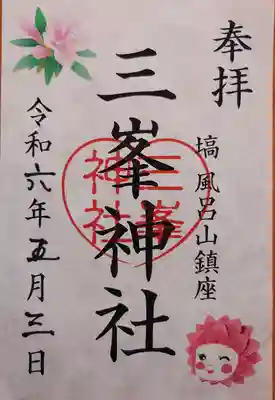 奉拝
塙 風呂山鎮座
三峯神社
三峯
神社
令和六年五月三日